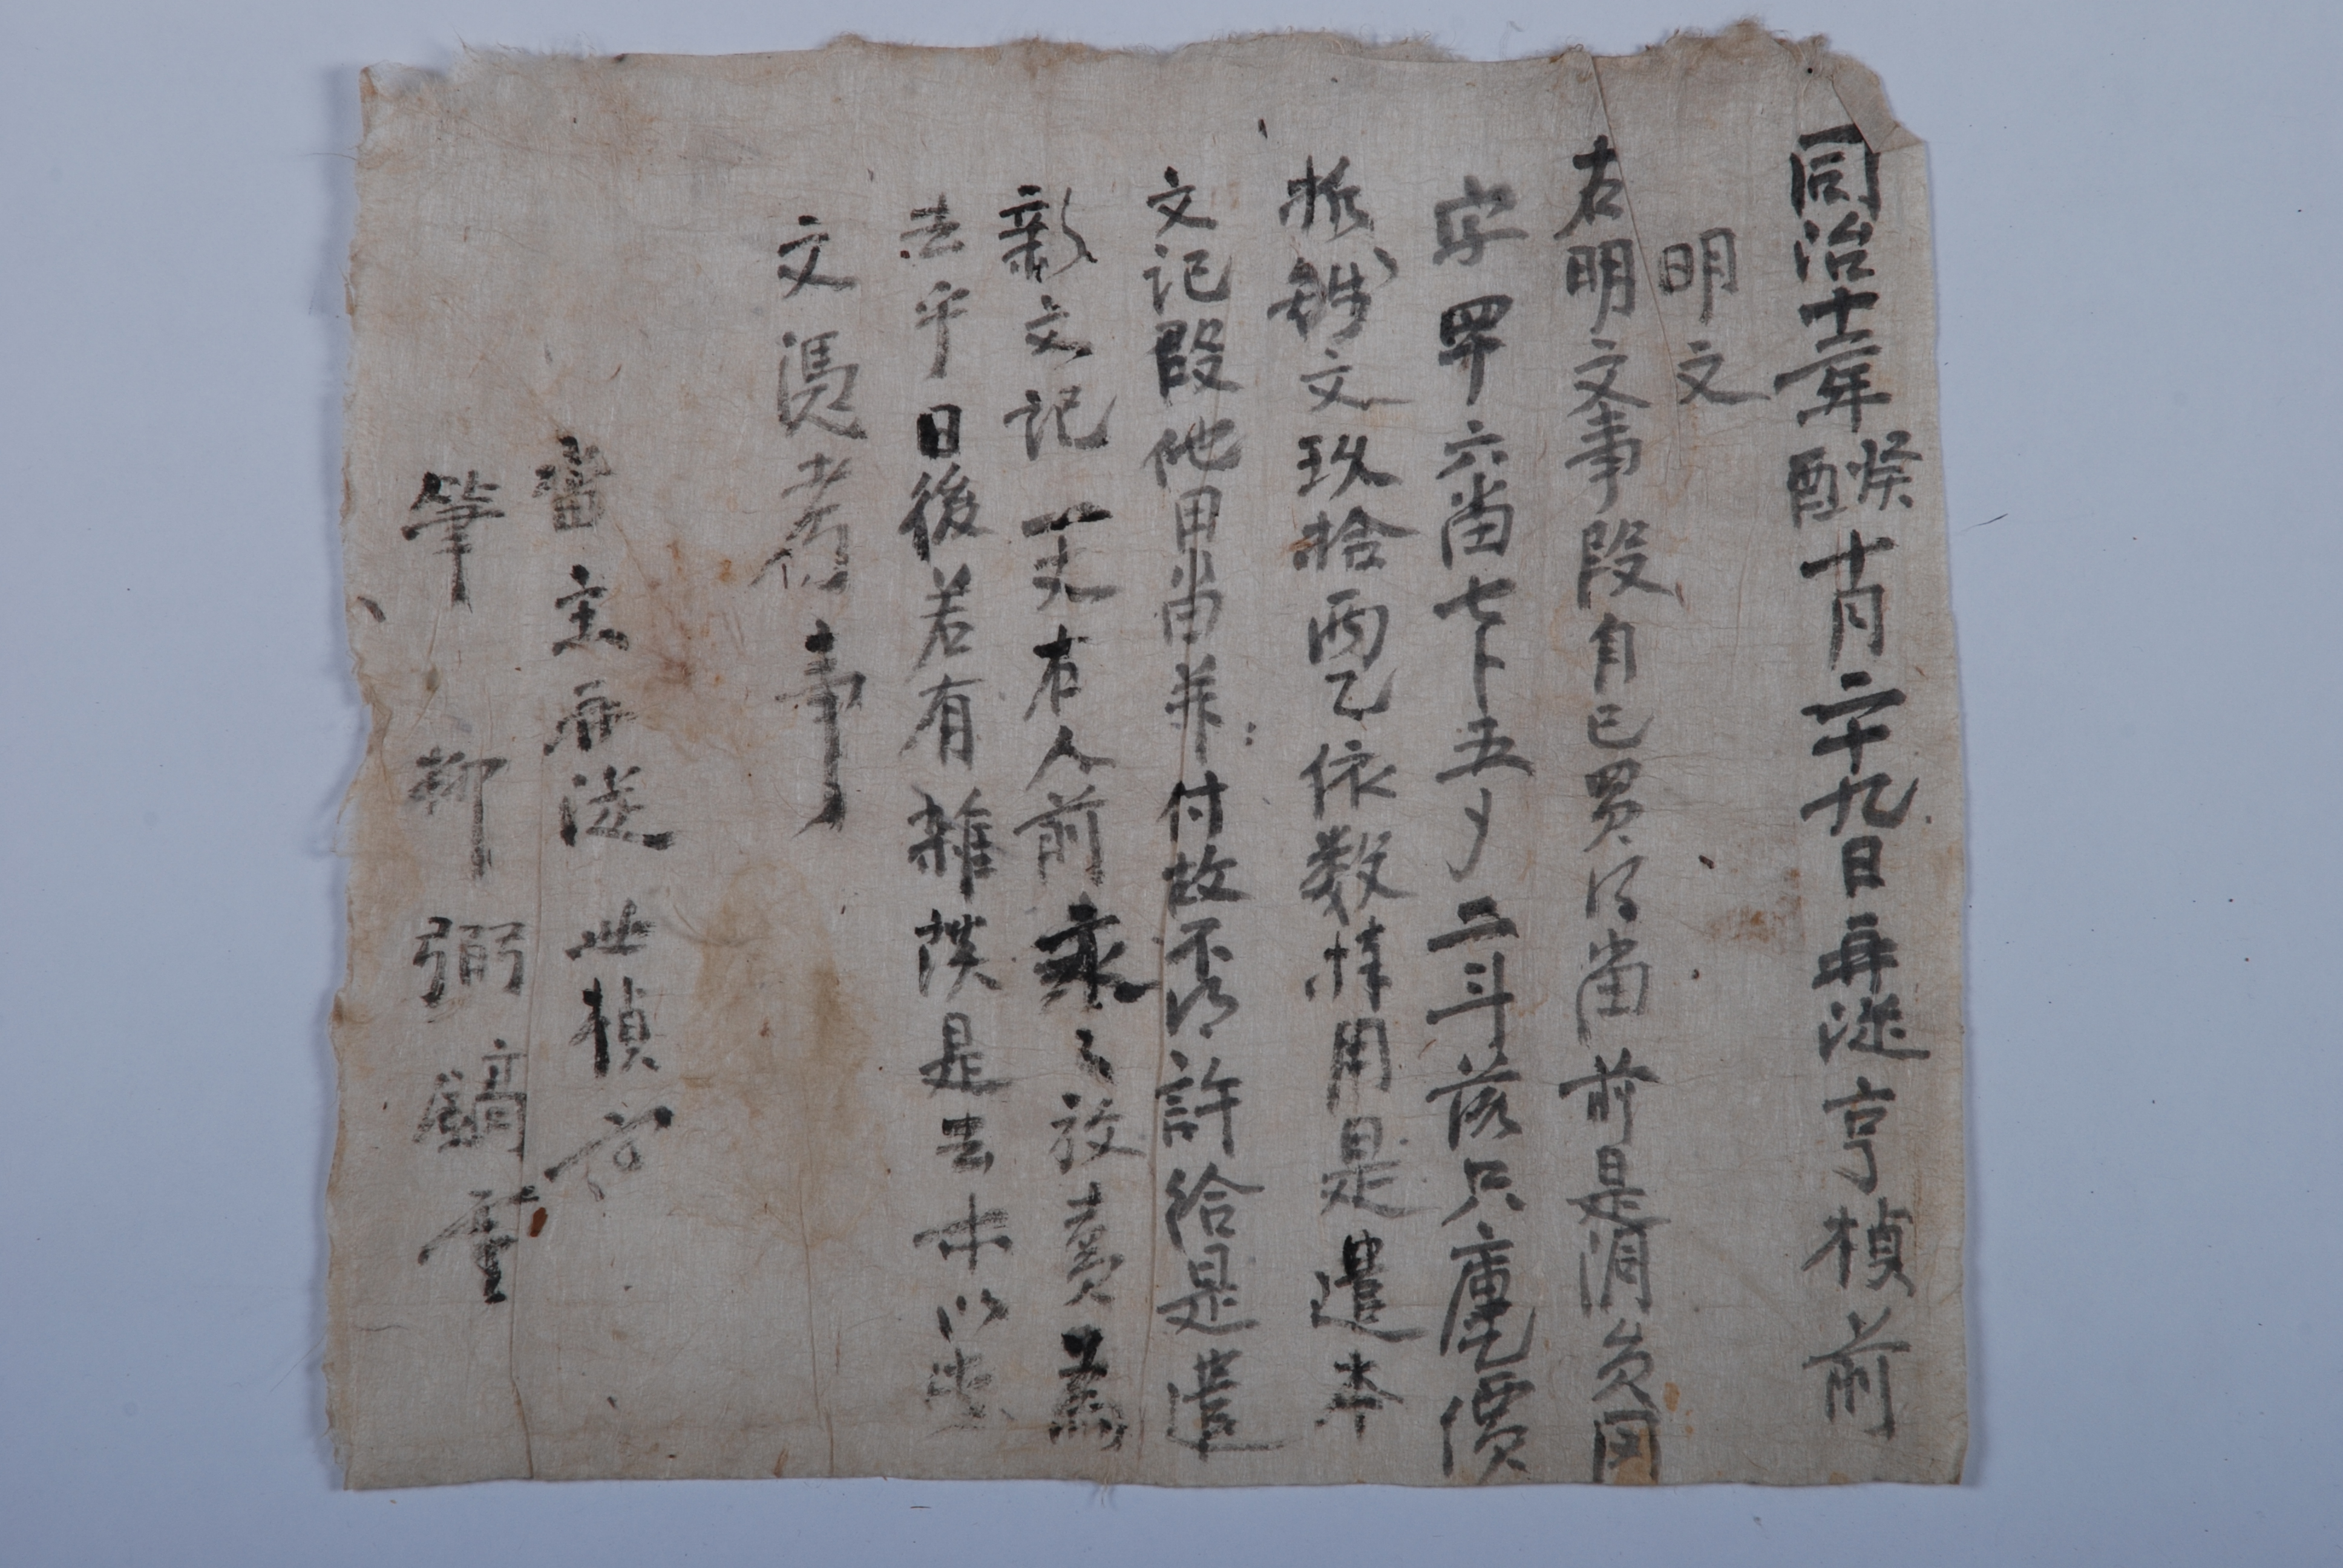 同治十二年癸酉十月二十九日再從亨楨前
明文
右明文事段自己買得畓前是員因
字六畓七卜五夕二斗落只庫價
折錢文玖拾兩乙依數捧用是遣本
文記段他田畓并付故不得許給是遣
新文記一丈右人前永〃放賣為
去乎日後若有雜談是去等以此
文憑考事
畓主再從世楨
筆 柳弼鎬